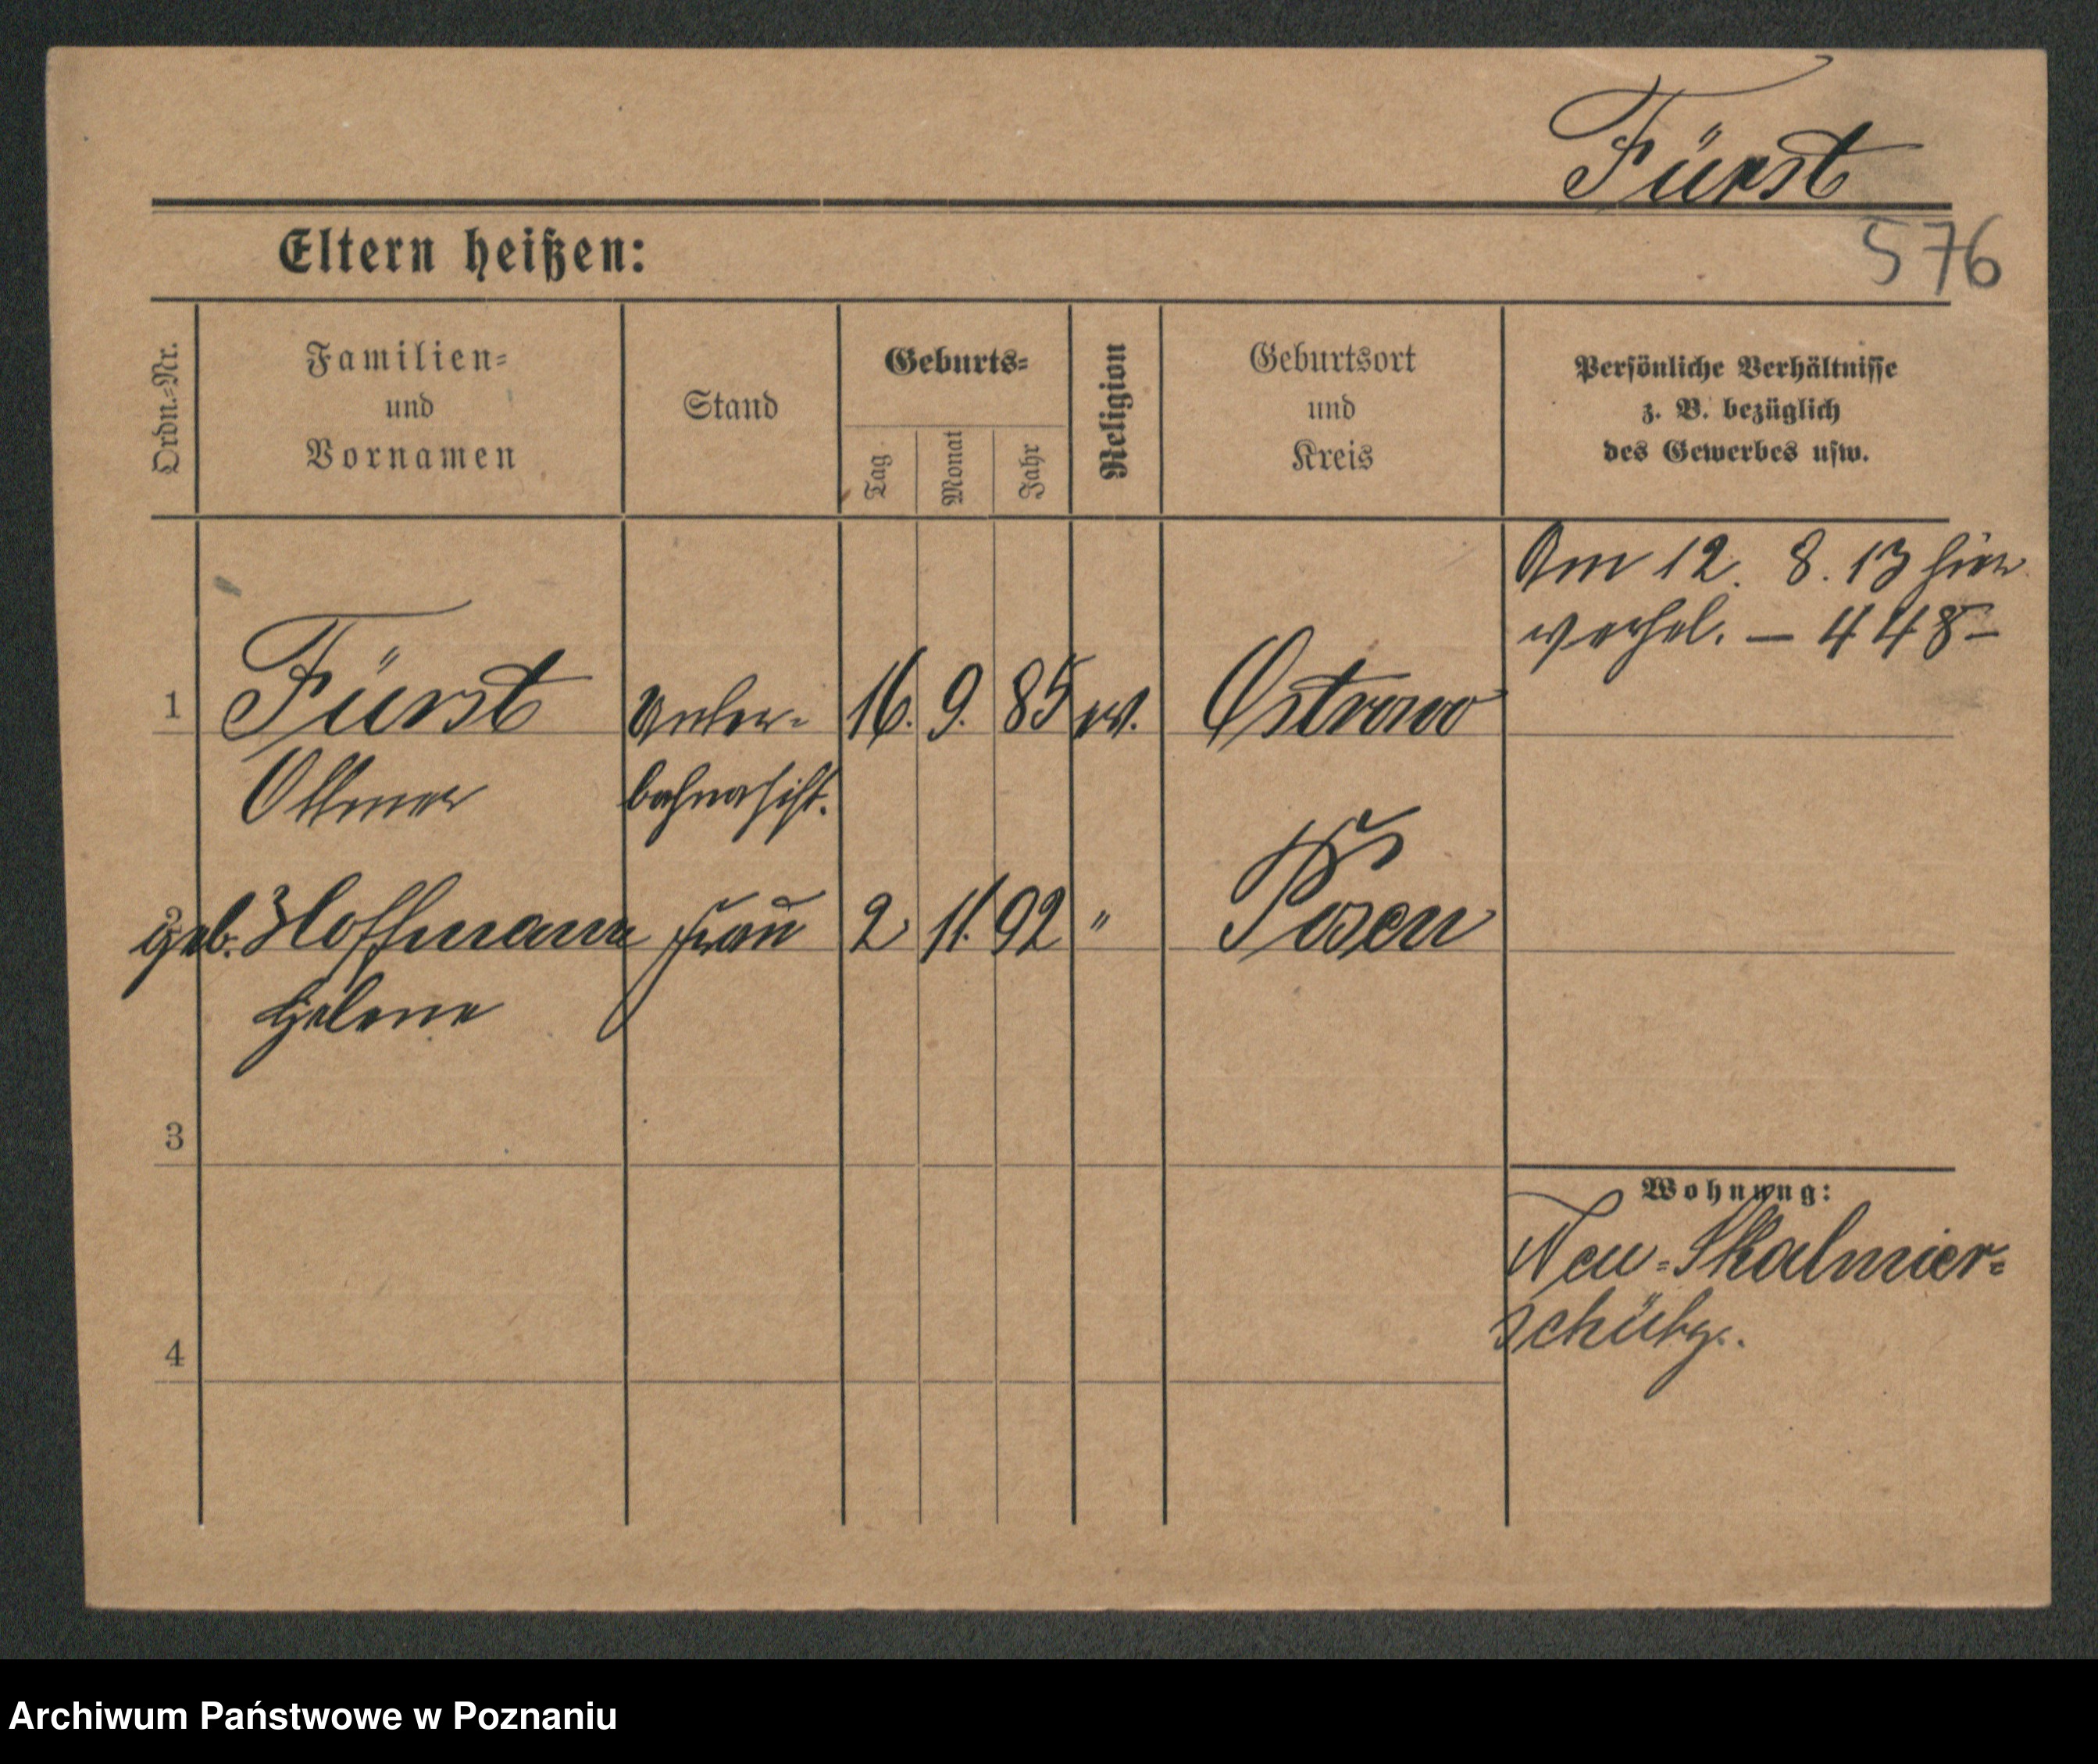 Fürst
576
Eltern heißen:
Ordn.-Nr.
Familien-
und
Vornamen
Stand
Geburts-
Tag
Monat
Jahr
Religion
Geburtsort
und
Kreis
Persönliche Verhältnisse
z. B. bezüglich
des Gewerbes usw.
Am 12. 8. 13 hier
verhel. — 448 —
1 Fürst 16. 9. 85 ev. Ostrowo
Ottmar
2 geb. Hoffmann Frau 2 11. 92 " Posen
Helene
3
Wohnung:
Neu-Skalmier-
schütz.
4
Archiwum Państwowe w Poznaniu